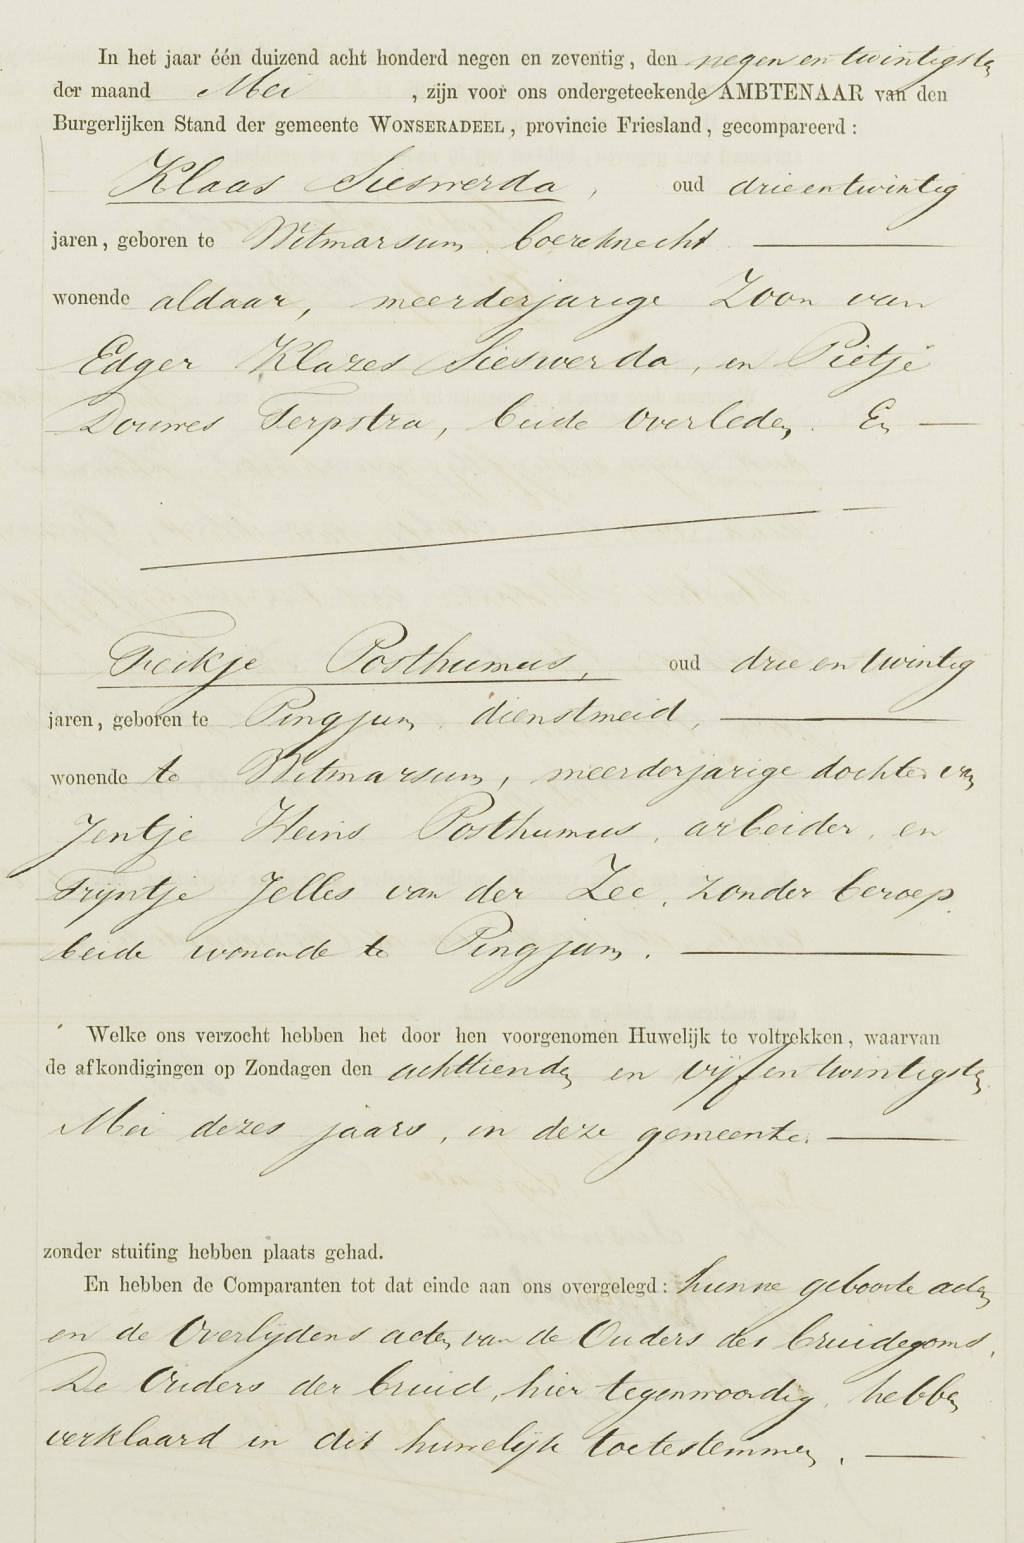 In het jaar één duizend acht honderd negen en zeventig, den negen en twintigsten
der maand Mei , zijn voor ons ondergeteekende AMBTENAAR van den
Burgerlijken Stand der gemeente WONSERADEEL, provincie Friesland, gecompareerd:
Klaas Sieswerda, oud drie en twintig
jaren, geboren te Witmarsum, boereknecht
wonende aldaar, meerderjarige Zoon van
Edger Klazes Sieswerda, en Pietje
Douwes Terpstra, beide overleden. En
Feikje Posthumus, oud drie en twintig
jaren, geboren te Pingjum, dienstmeid,
wonende te Witmarsum, meerderjarige dochter van
Jentje Heins Posthumus, arbeider, en
Trijntje Jelles van der Zee, zonder beroep,
beide wonende te Pingjum.
Welke ons verzocht hebben het door hen voorgenomen Huwelijk te voltrekken, waarvan
de afkondigingen op Zondagen den achttienden en vijf en twintigsten
Mei dezes jaars, in deze gemeente.
zonder stuiting hebben plaats gehad.
En hebben de Comparanten tot dat einde aan ons overgelegd: hunne geboorte acten
en de Overlijdens acten van de Ouders des bruidegoms.
De Ouders der bruid, hier tegenwoordig, hebben
verklaard in dit huwelijk toetestemmen.